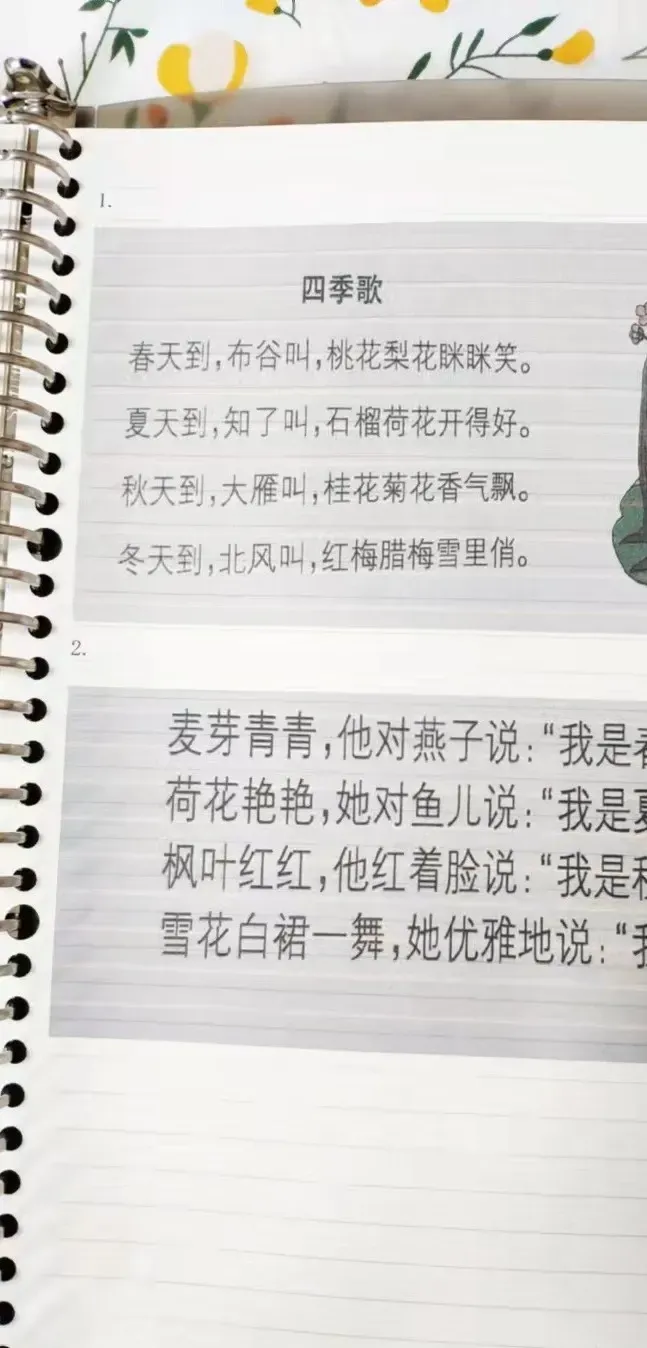 1.
四季歌
春天到，布谷叫，桃花梨花眯眯笑。
夏天到，知了叫，石榴荷花开得好。
秋天到，大雁叫，桂花菊花香气飘。
冬天到，北风叫，红梅腊梅雪里俏。
2.
麦芽青青，他对燕子说：“我是
荷花艳艳，她对鱼儿说：“我是
枫叶红红，他红着脸说：“我是
雪花白裙一舞，她优雅地说：“